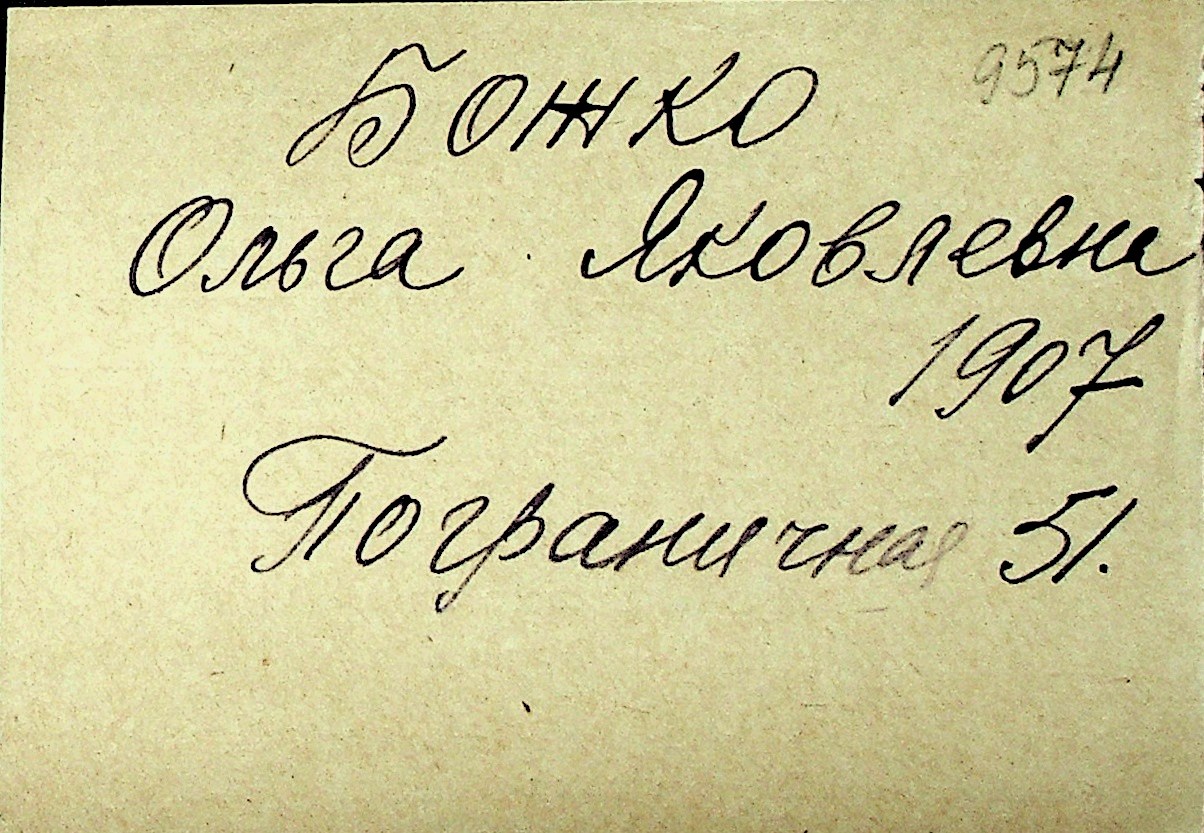 9574
Божко
Ольга Яковлевна
1907
Пограничная 51.